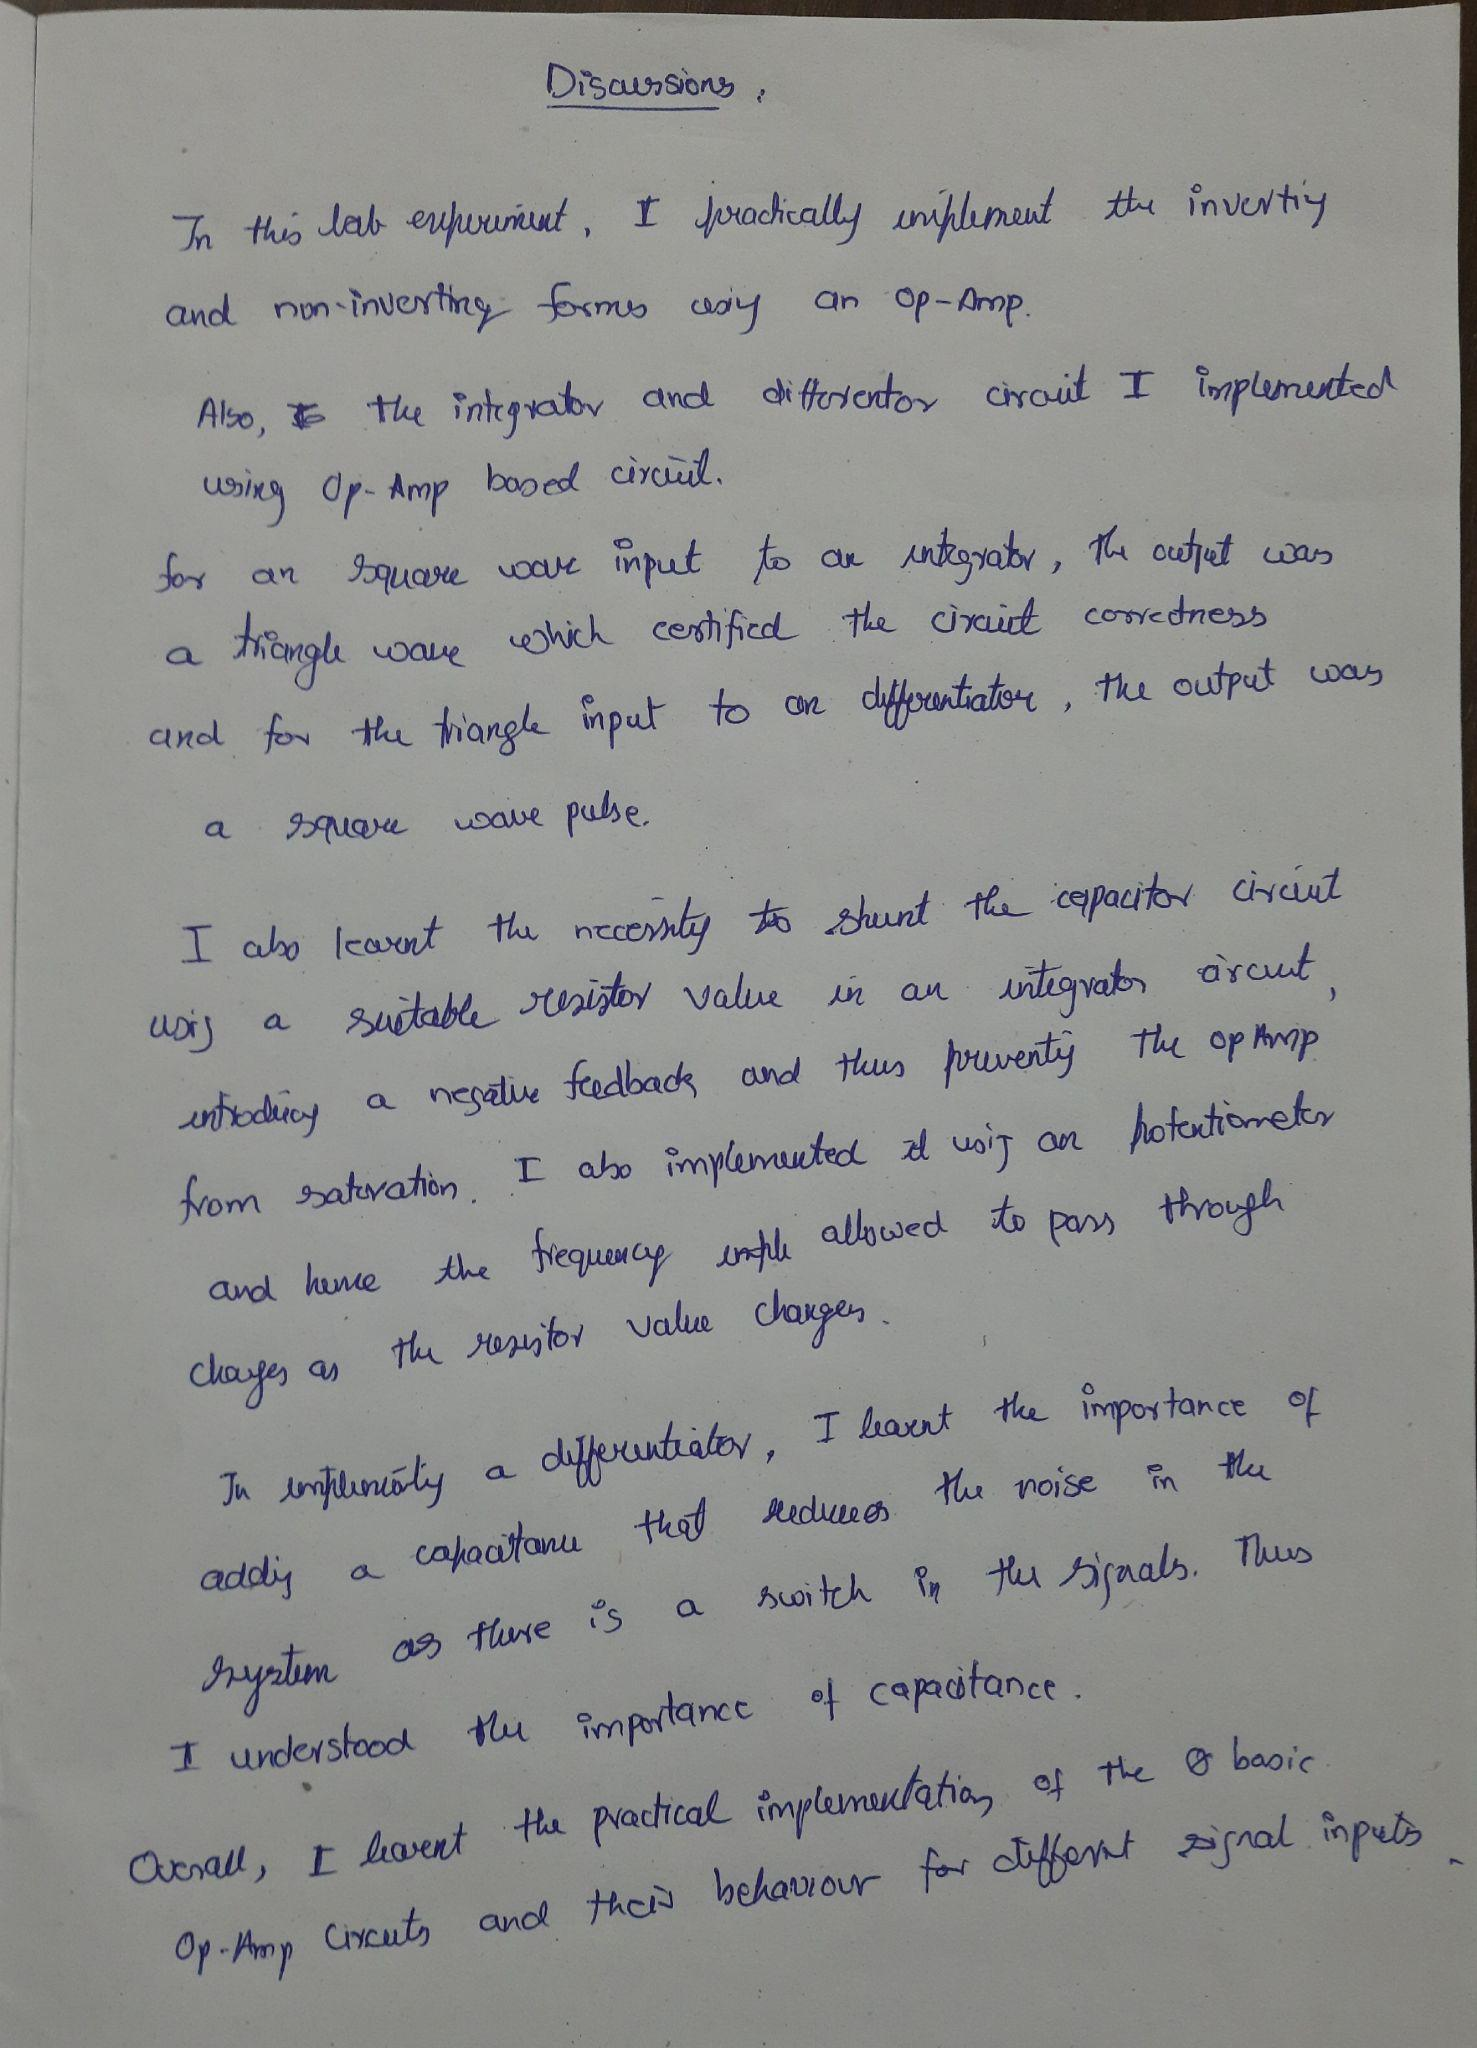 Discussions.
In this lab experiment, I practically implement the inverting
and non-inverting forms using an Op-Amp.
Also, the integrator and differentor circuit I implemented
using Op-Amp based circuit.
for an square wave input to an integrator, the output was
a triangle wave which certified the circuit correctness
and for the triangle input to an differentiator, the output was
a square wave pulse.
I also learnt the necessity to shunt the capacitor circuit
using a suitable resistor value in an integrator circuit,
introducing a negative feedback and thus preventing the op Amp
from saturation. I also implemented it using an potentiometer
and hence the frequency allowed to pass through
changes as the resistor value changes.
In implementing a differentiator, I learnt the importance of
adding a capacitance that reduces the noise in the
system as there is a switch in the signals. Thus
I understood the importance of capacitance.
Overall, I learnt the practical implementation of the basic
Op-Amp Circuits and their behaviour for different signal inputs.